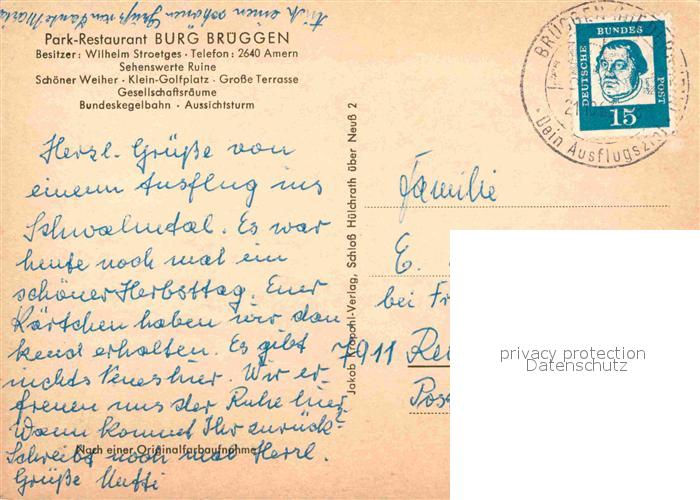 Auch einen schönen Gruß von Tante Maria
Park-Restaurant BURG BRÜGGEN
Besitzer: Wilhelm Stroetges · Telefon: 2640 Amern
Sehenswerte Ruine
Schöner Weiher · Klein-Golfplatz · Große Terrasse
Gesellschaftsräume
Bundeskegelbahn · Aussichtsturm
Herzl. Grüße von
einem Ausflug ins
Schwalmtal. Es war
heute noch mal ein
schöner Herbsttag. Euer
Kärtchen haben wir dan
kend erhalten. Es gibt
nichts Neues hier. Wir er-
freuen uns der Ruhe hier.
Wann kommt Ihr zurück?
Schreibt noch mal Herzl.
Grüße Mutti
Nach einer Originalfarbaufnahme
Jakob Krapohl-Verlag, Schloß Hülchrath über Neuß 2
BRÜGGEN
Dein Ausflugsziel
DEUTSCHE BUNDES POST
15
Familie
E.
bei Fr
7911 Reu
Pos
privacy protection
Datenschutz